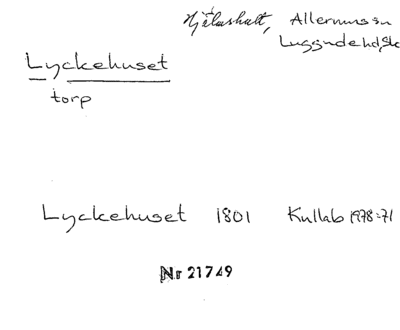 Hjälmshult, Allerums sn
Luggude hd, Sk
Lyckehuset
torp
Lyckehuset 1801 Kullab 1978:71
Nr 21749